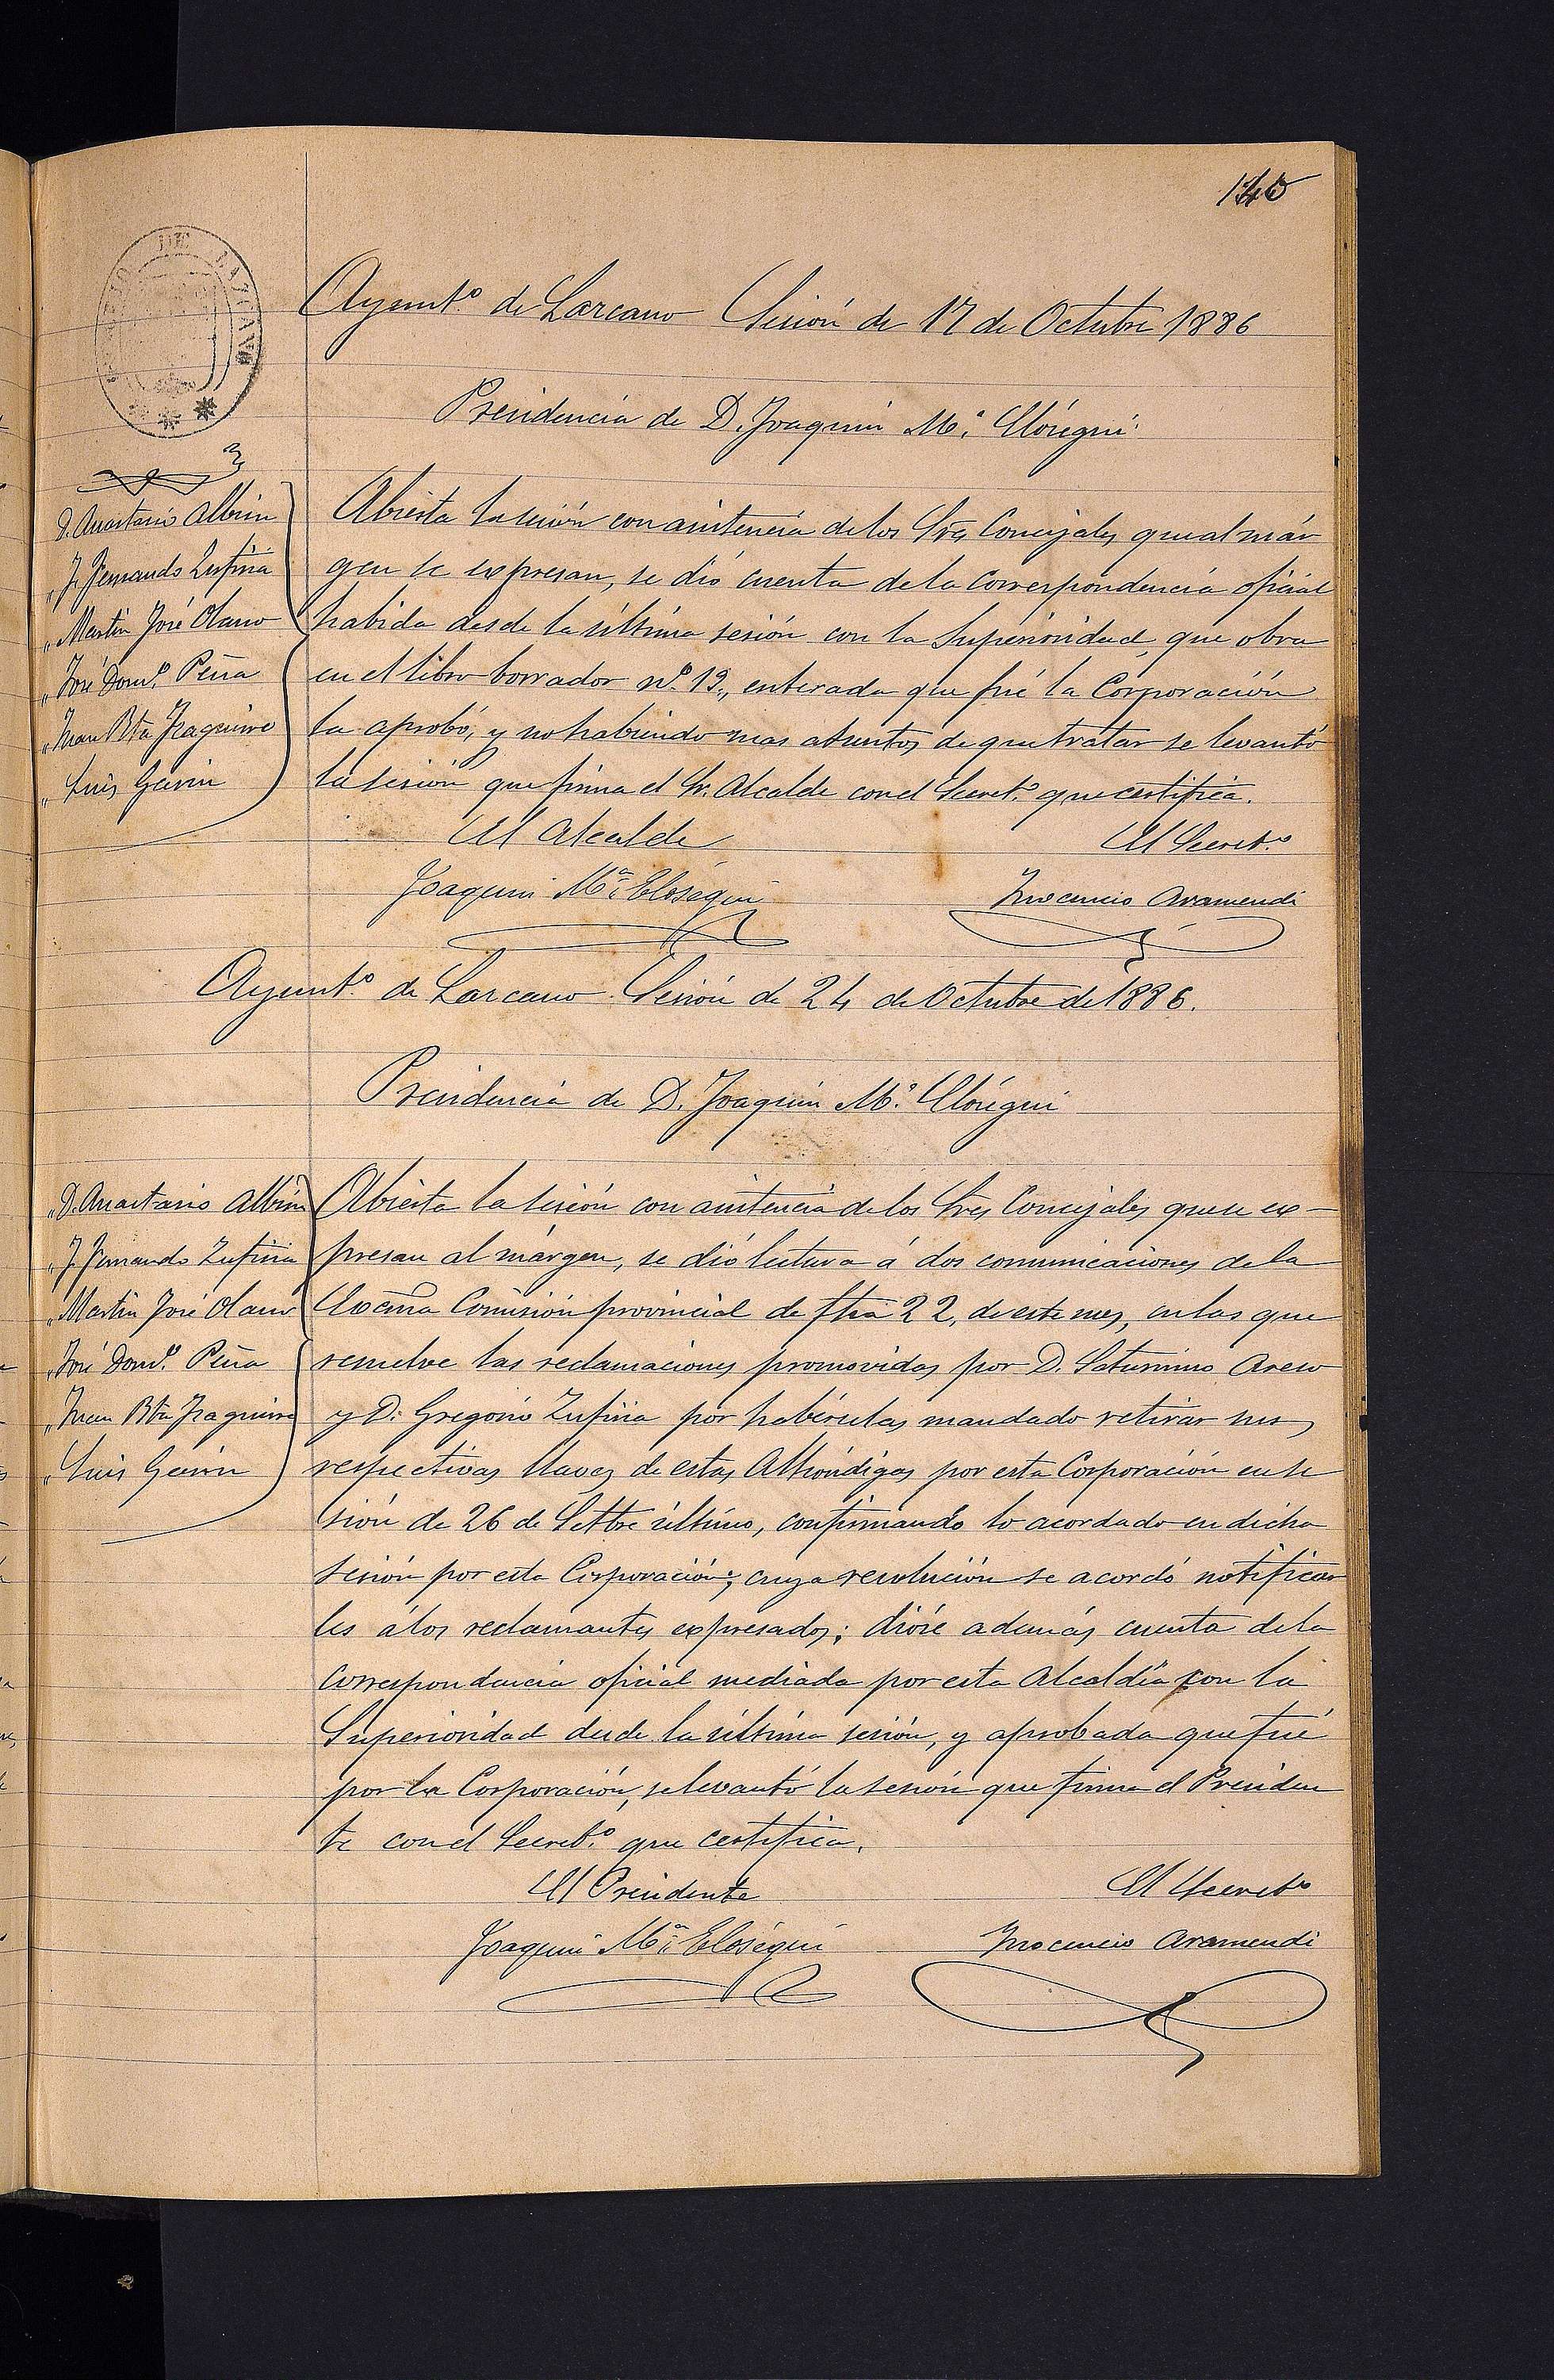 140
Ayunt.º de Lazcano Sesión de 17 de Octubre 1886
Presidencia de D. Joaquin M.ª Elósegui
D. Anastasio Albisu
" J. Fernando Zufiria
" Martin José Olano
" José Dom.º Peña
" Juan Bta Yzaguirre
" Luis Garin
Abierta la sesión con asistencia de los Sres Concejales que al már
gen se expresan, se dió cuenta de la correspondencia oficial
habida desde la última sesión con la Superioridad, que obra
en el libro borrador nº. 12, enterada que fué la Corporación
la aprobó, y no habiendo mas asuntos de que tratar se levantó
la sesión que firma el Sr. Alcalde con el Secret.º que certifica.
El Alcalde
El Secret.º
Joaquin Mª. Elosegui
Ynocencio Aramendi
Ayunt.º de Lazcano. Sesión de 24 de Octubre de 1886.
Presidencia de D. Joaquin M.ª Elósegui
" D. Anastasio Albisu
" J. Fernando Zufiria
" Martin José Olano
" José Dom.º Peña
" Juan Bta Yzaguirre
" Luis Garin
Abierta la sesión con asistencia de los Sres Concejales que se ex-
presan al márgen, se dió lectura á dos comunicaciones de la
Excma Comisión provincial de fha 22, de este mes, en las que
resuelve las reclamaciones promovidas por D. Saturnino Areso
y D. Gregorio Zufiria por habérseles mandado retirar sus
respectivas llaves de estas Alhóndigas por esta Corporación en se
sión de 26 de Setbre último, confirmando lo acordado en dicha
sesión por esta Corporación; cuya resolución se acordó notificar
les á los reclamantes expresados; dióse además cuenta de la
correspondencia oficial mediada por esta Alcaldía con la
Superioridad desde la última sesión, y aprobada que fué
por la Corporación, se levantó la sesión que firma el Presiden
te con el Secret.º que certifica.
El Presidente
El Secret.º
Joaquin Mª. Elósegui
Ynocencio Aramendi